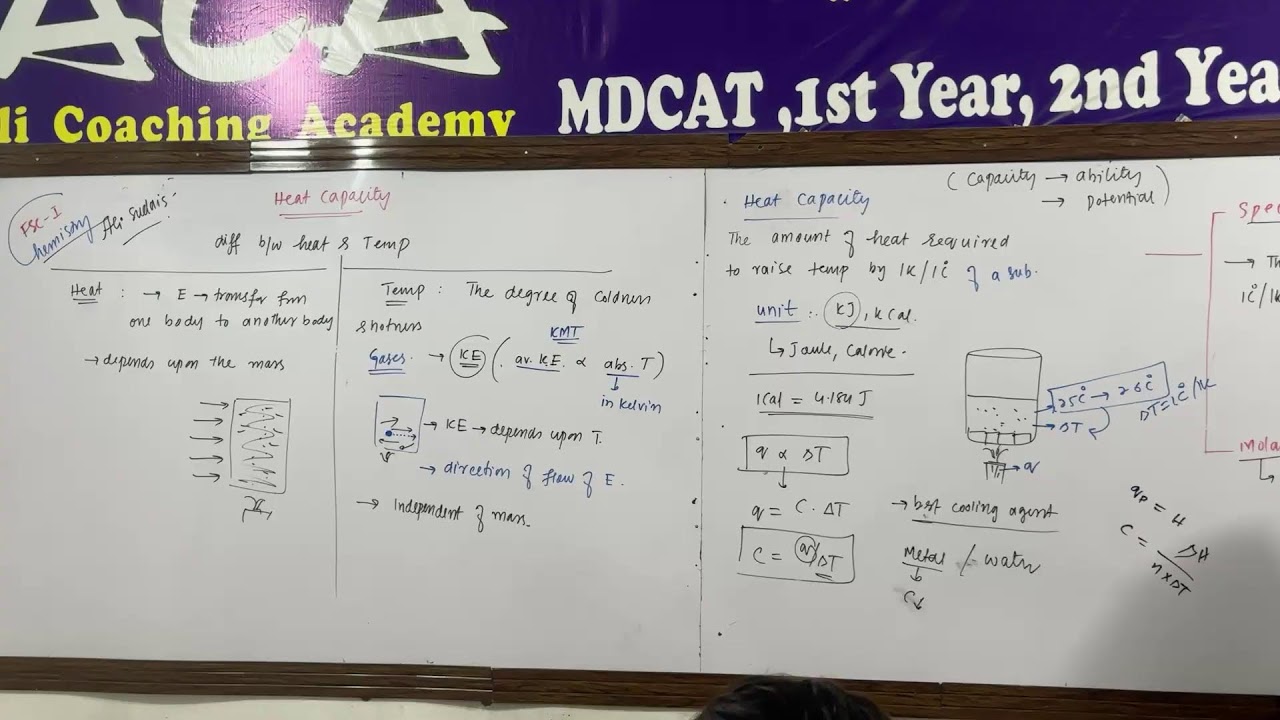 ACA
li Coaching Academy
MDCAT ,1st Year, 2nd Yea
FSC-I
Chemistry Ali Sudais
Heat Capacity
diff b/w heat & Temp
Heat : → E → transfer from
one body to another body
→ depends upon the mass
Temp : The degree of coldness
& hotness
KMT
Gases. → KE (av. K.E. ∝ abs. T)
↓
in kelvin
→ KE → depends upon T.
→ direction of flow of E.
→ Independent of mass.
(Capacity → ability
→ potential)
Heat Capacity
The amount of heat required
to raise temp by 1K/1C° of a sub.
unit : KJ, kCal.
↳ Joule, Calorie.
1Cal = 4.184 J
q ∝ ΔT
↓
q = C · ΔT
C = q/ΔT
25C° → 26C°
ΔT = 1C°/1K
→ ΔT
→ q
→ best cooling agent
Metal / water
↓
C↓
C = ΔH
n×ΔT
Spec
→ Th
1C°/1K
Mola